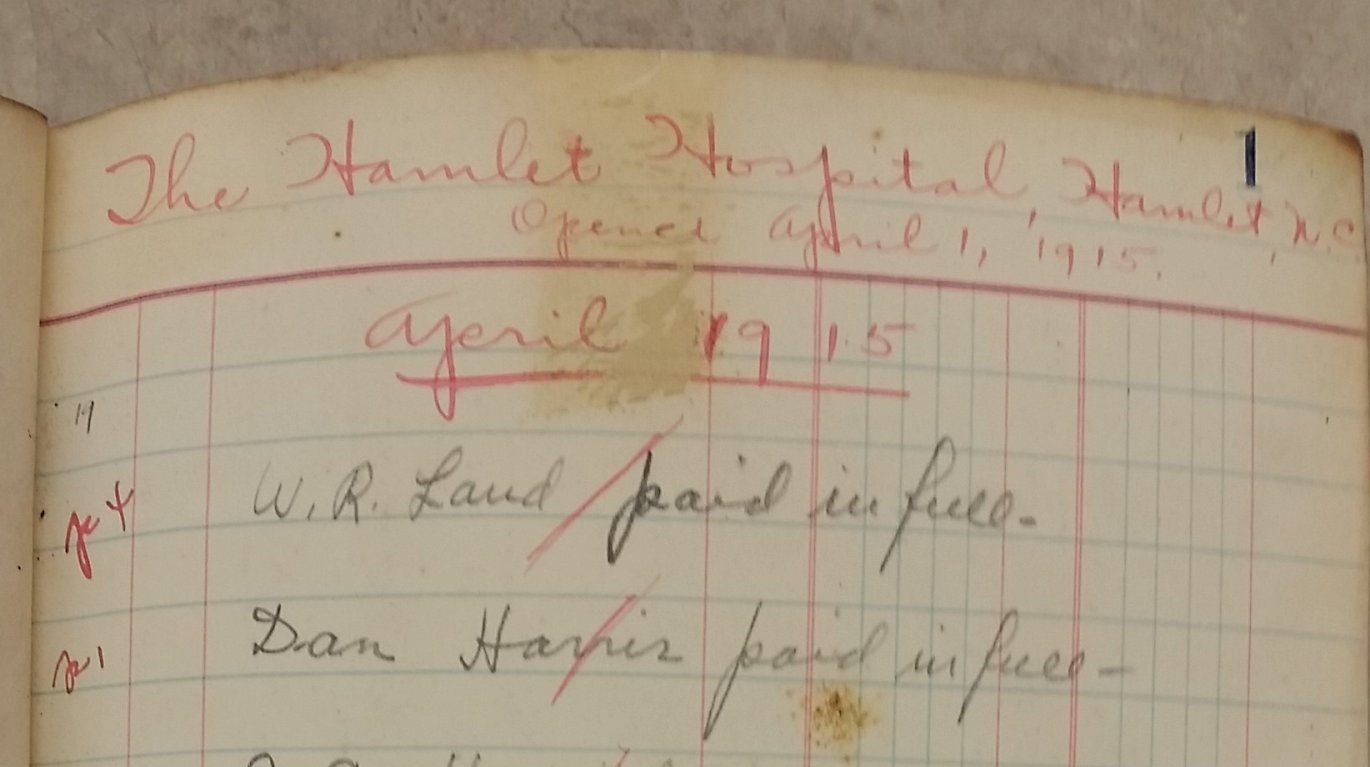 1
The Hamlet Hospital, Hamlet, N.C.
Opened April 1, 1915.
April 1915
19
W. R. Land / paid in full.
Dan Harris paid in full -